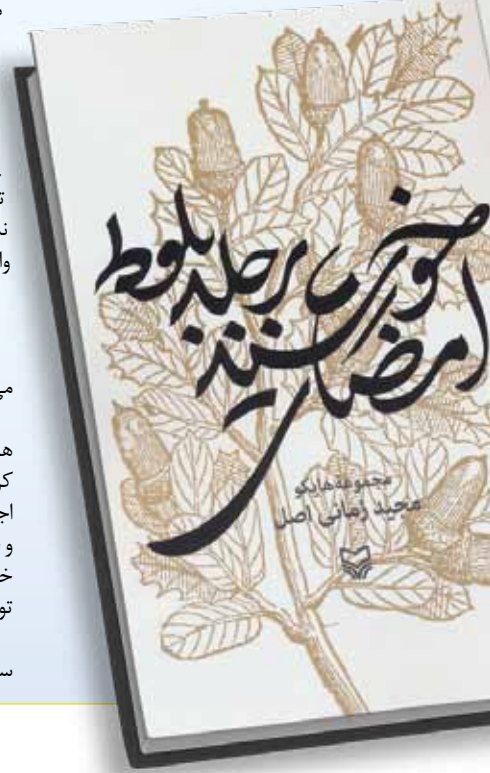 امضای خورشید بر جلد بلوط
مجموعه هایکو
مجید زمانی اصل